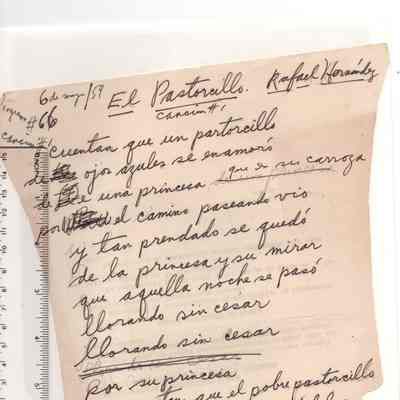 6 de mayo/59
El Pastorcillo. Rafael Hernández
canción #1
Programa #66
canción #1
Cuentan que un pastorcillo
de ojos azules se enamoró
de una princesa que en su carroza
por el camino paseando vio
y tan prendado se quedó
de la princesa y su mirar
que aquella noche se pasó
llorando sin cesar
llorando sin cesar
por su princesa
que el pobre pastorcillo